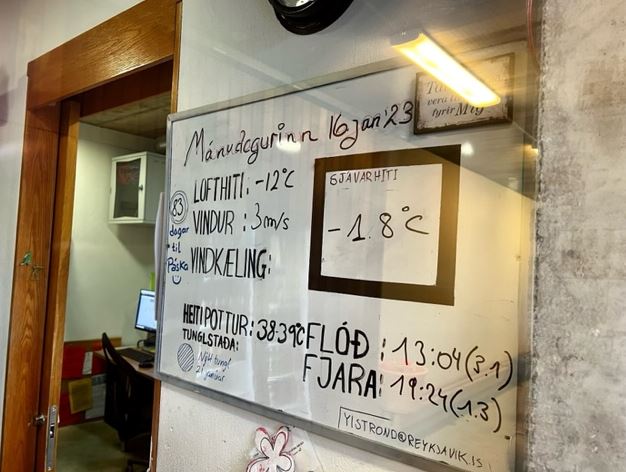 Mánudagurinn 16 jan'23
LOFTHITI: -12°C
VINDUR: 3 m/s
VINDKÆLING:
83
dagar
til
Páska
SJÁVARHITI
-1.8°C
HEITIPOTTUR: 38-39°C
TUNGLSTAÐA:
Nýtt tungl
21 janúar
FLÓÐ: 13:04 (3.1)
FJARA: 19:24 (1.3)
YLSTROND@REYKJAVIK.IS
vera
fyrir Mig